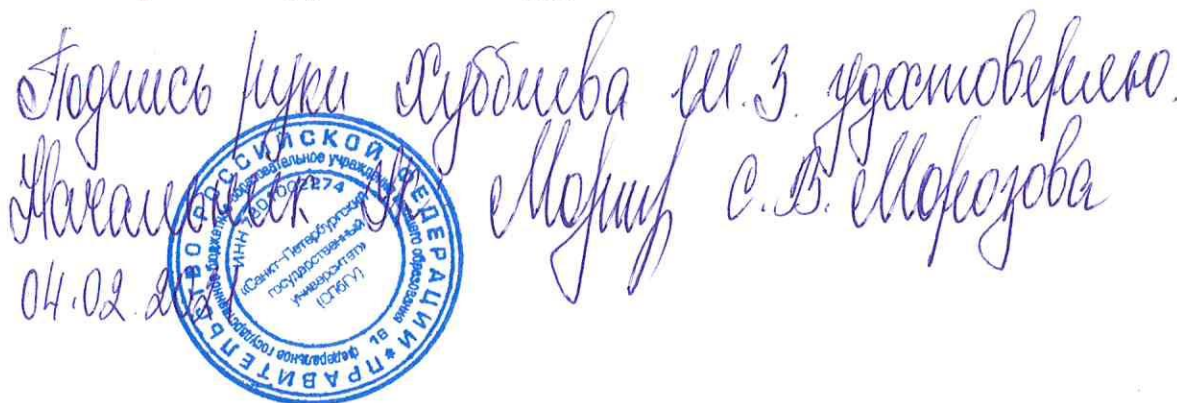 Подпись руки Хуббиева Ш.З. удостоверяю.
Начальник С.В. Морозова
04.02.2021
ПРАВИТЕЛЬСТВО РОССИЙСКОЙ ФЕДЕРАЦИИ *
федеральное государственное бюджетное образовательное учреждение высшего образования
ИНН 7801002274
«Санкт-Петербургский
государственный
университет»
(СПбГУ)
16